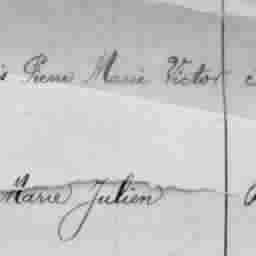 Pierre Marie Victor
Marie Julien